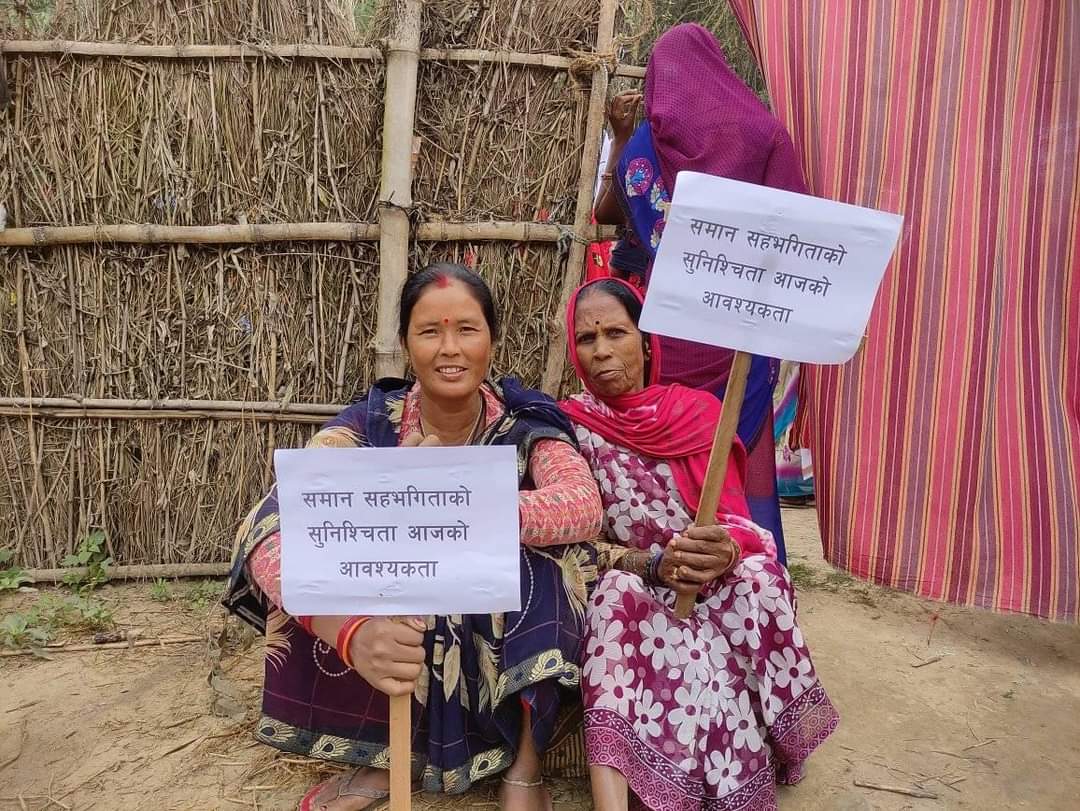 समान सहभगिताको
सुनिश्चिता आजको
आवश्यकता
समान सहभगिताको
सुनिश्चिता आजको
आवश्यकता